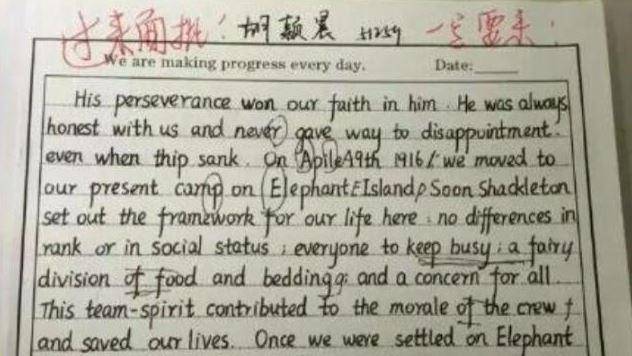 过来面批! 胡颖晨 51259 一定要来!
We are making progress every day. Date:
His perseverance won our faith in him. He was always
honest with us and never gave way to disappointment.
even when thip sank. On Apile19th 1916 / we moved to
our present camp on Elephant Island, Soon Shackleton
set out the framework for our life here: no differences in
rank or in social status; everyone to keep busy; a fairy
division of food and bedding; and a concern for all.
This team-spirit contributed to the morale of the crew
and saved our lives. Once we were settled on Elephant